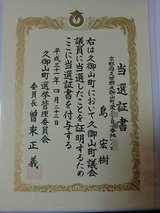 当選証書
島宏樹
右は久御山町において久御山町議会
議員に当選したことを証明するため
ここに当選証書を付与する
平成二十一年四月二十二日
久御山町選挙管理委員会
委員長 曽東正義